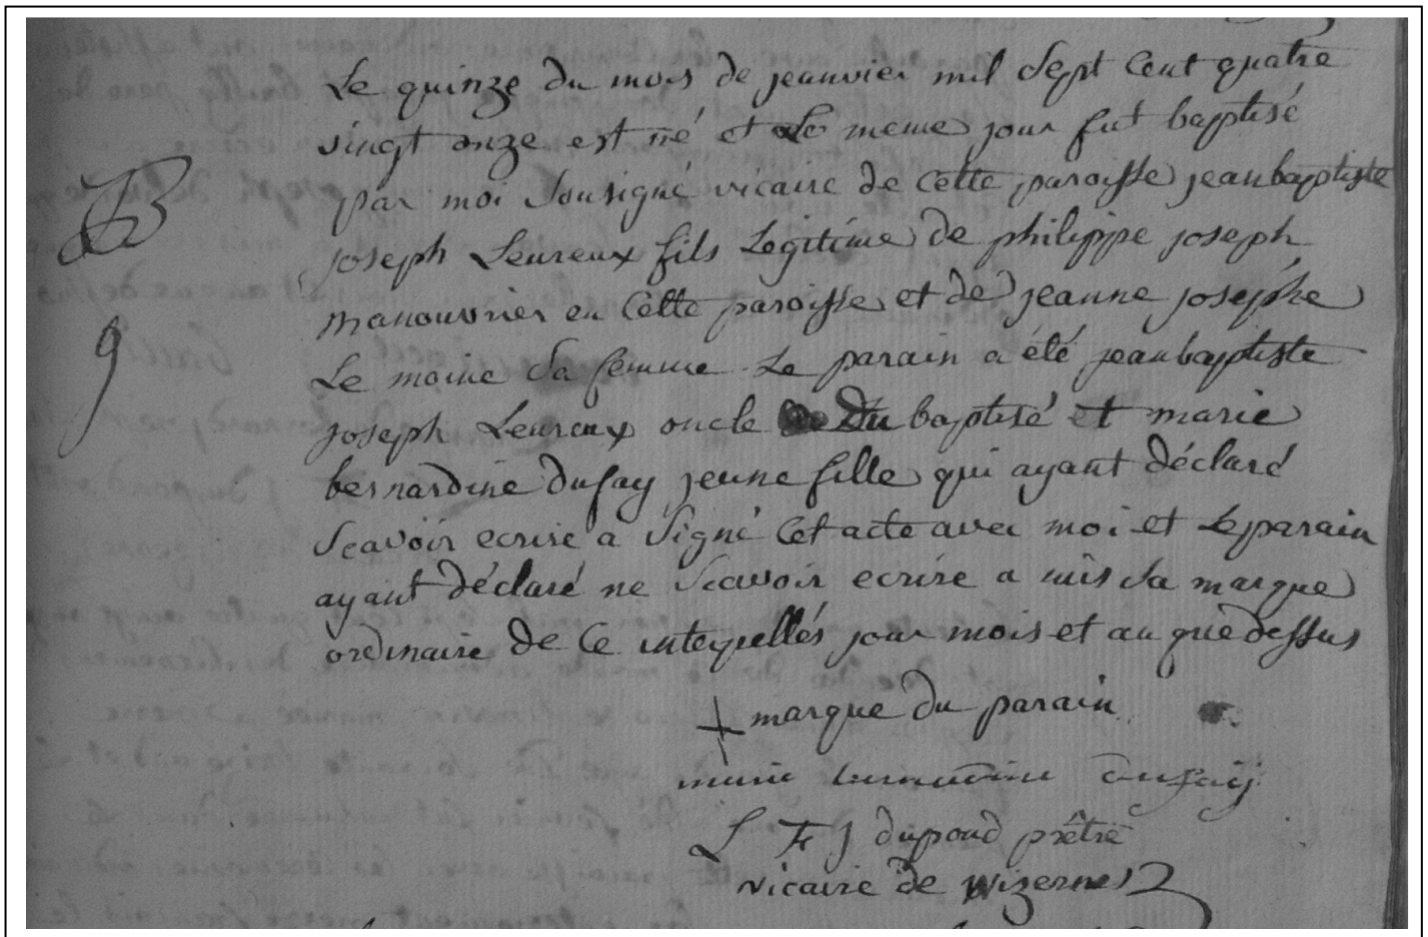 Le quinze du mois de jeanvier mil Sept Cent quatre
vingt onze est né et Le meme jour fut baptisé
B
par moi Sousigné vicaire de Cette paroisse jeanbaptiste
joseph Leureux fils Legitime de philippe joseph
manouvrier en Cette paroisse et de jeanne josephe
9
Le moine Sa femme Le parain a été jeanbaptiste
joseph Leureux oncle Du baptisé et marie
bernardine dufay jeune fille qui ayant déclaré
Scavoir ecrire a Signé Cet acte avec moi et Le parain
ayant déclaré ne Scavoir ecrire a mis Sa marque
ordinaire de Ce jour mois et an que dessus
marque du parain
marie bernardine dufay
L F J dupond prêtre
vicaire de Wizernes